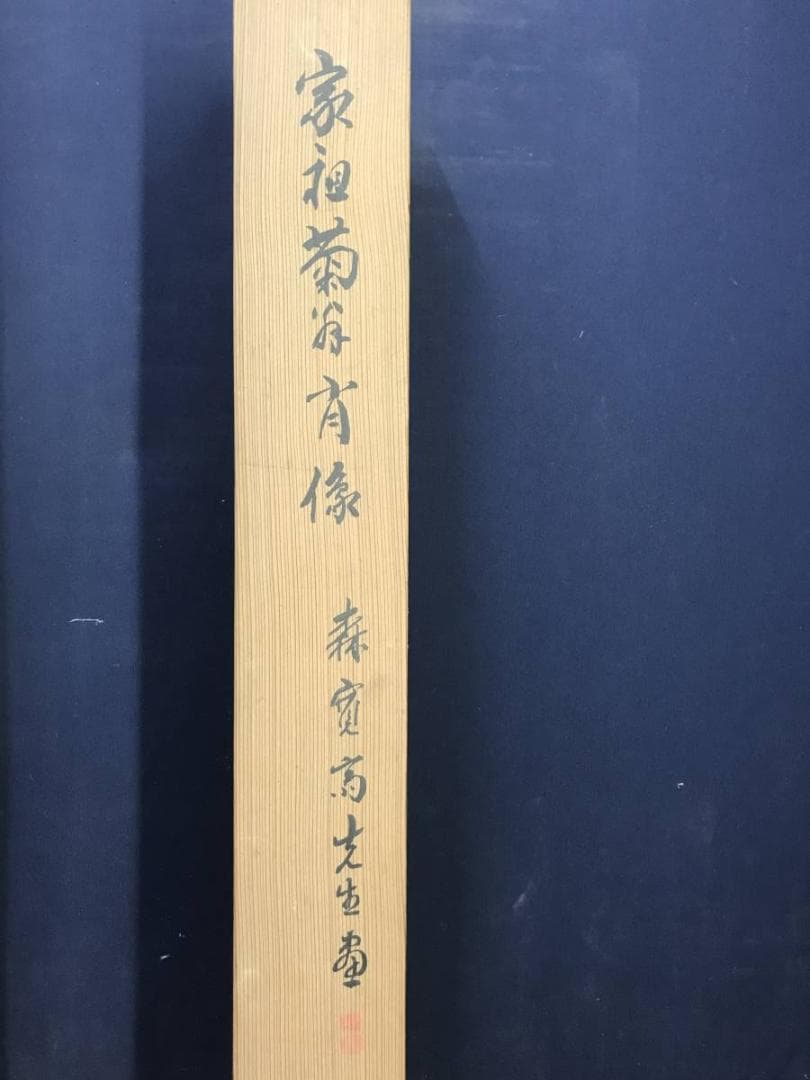 家祖菊翁肖像
森寛斎先生畫